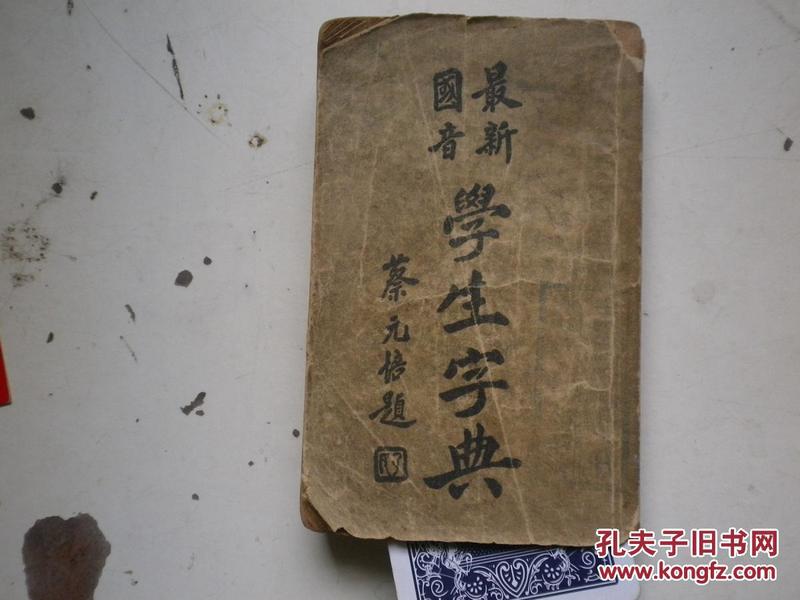 最新
國音
學生字典
蔡元培題
孔夫子旧书网
www.kongfz.com